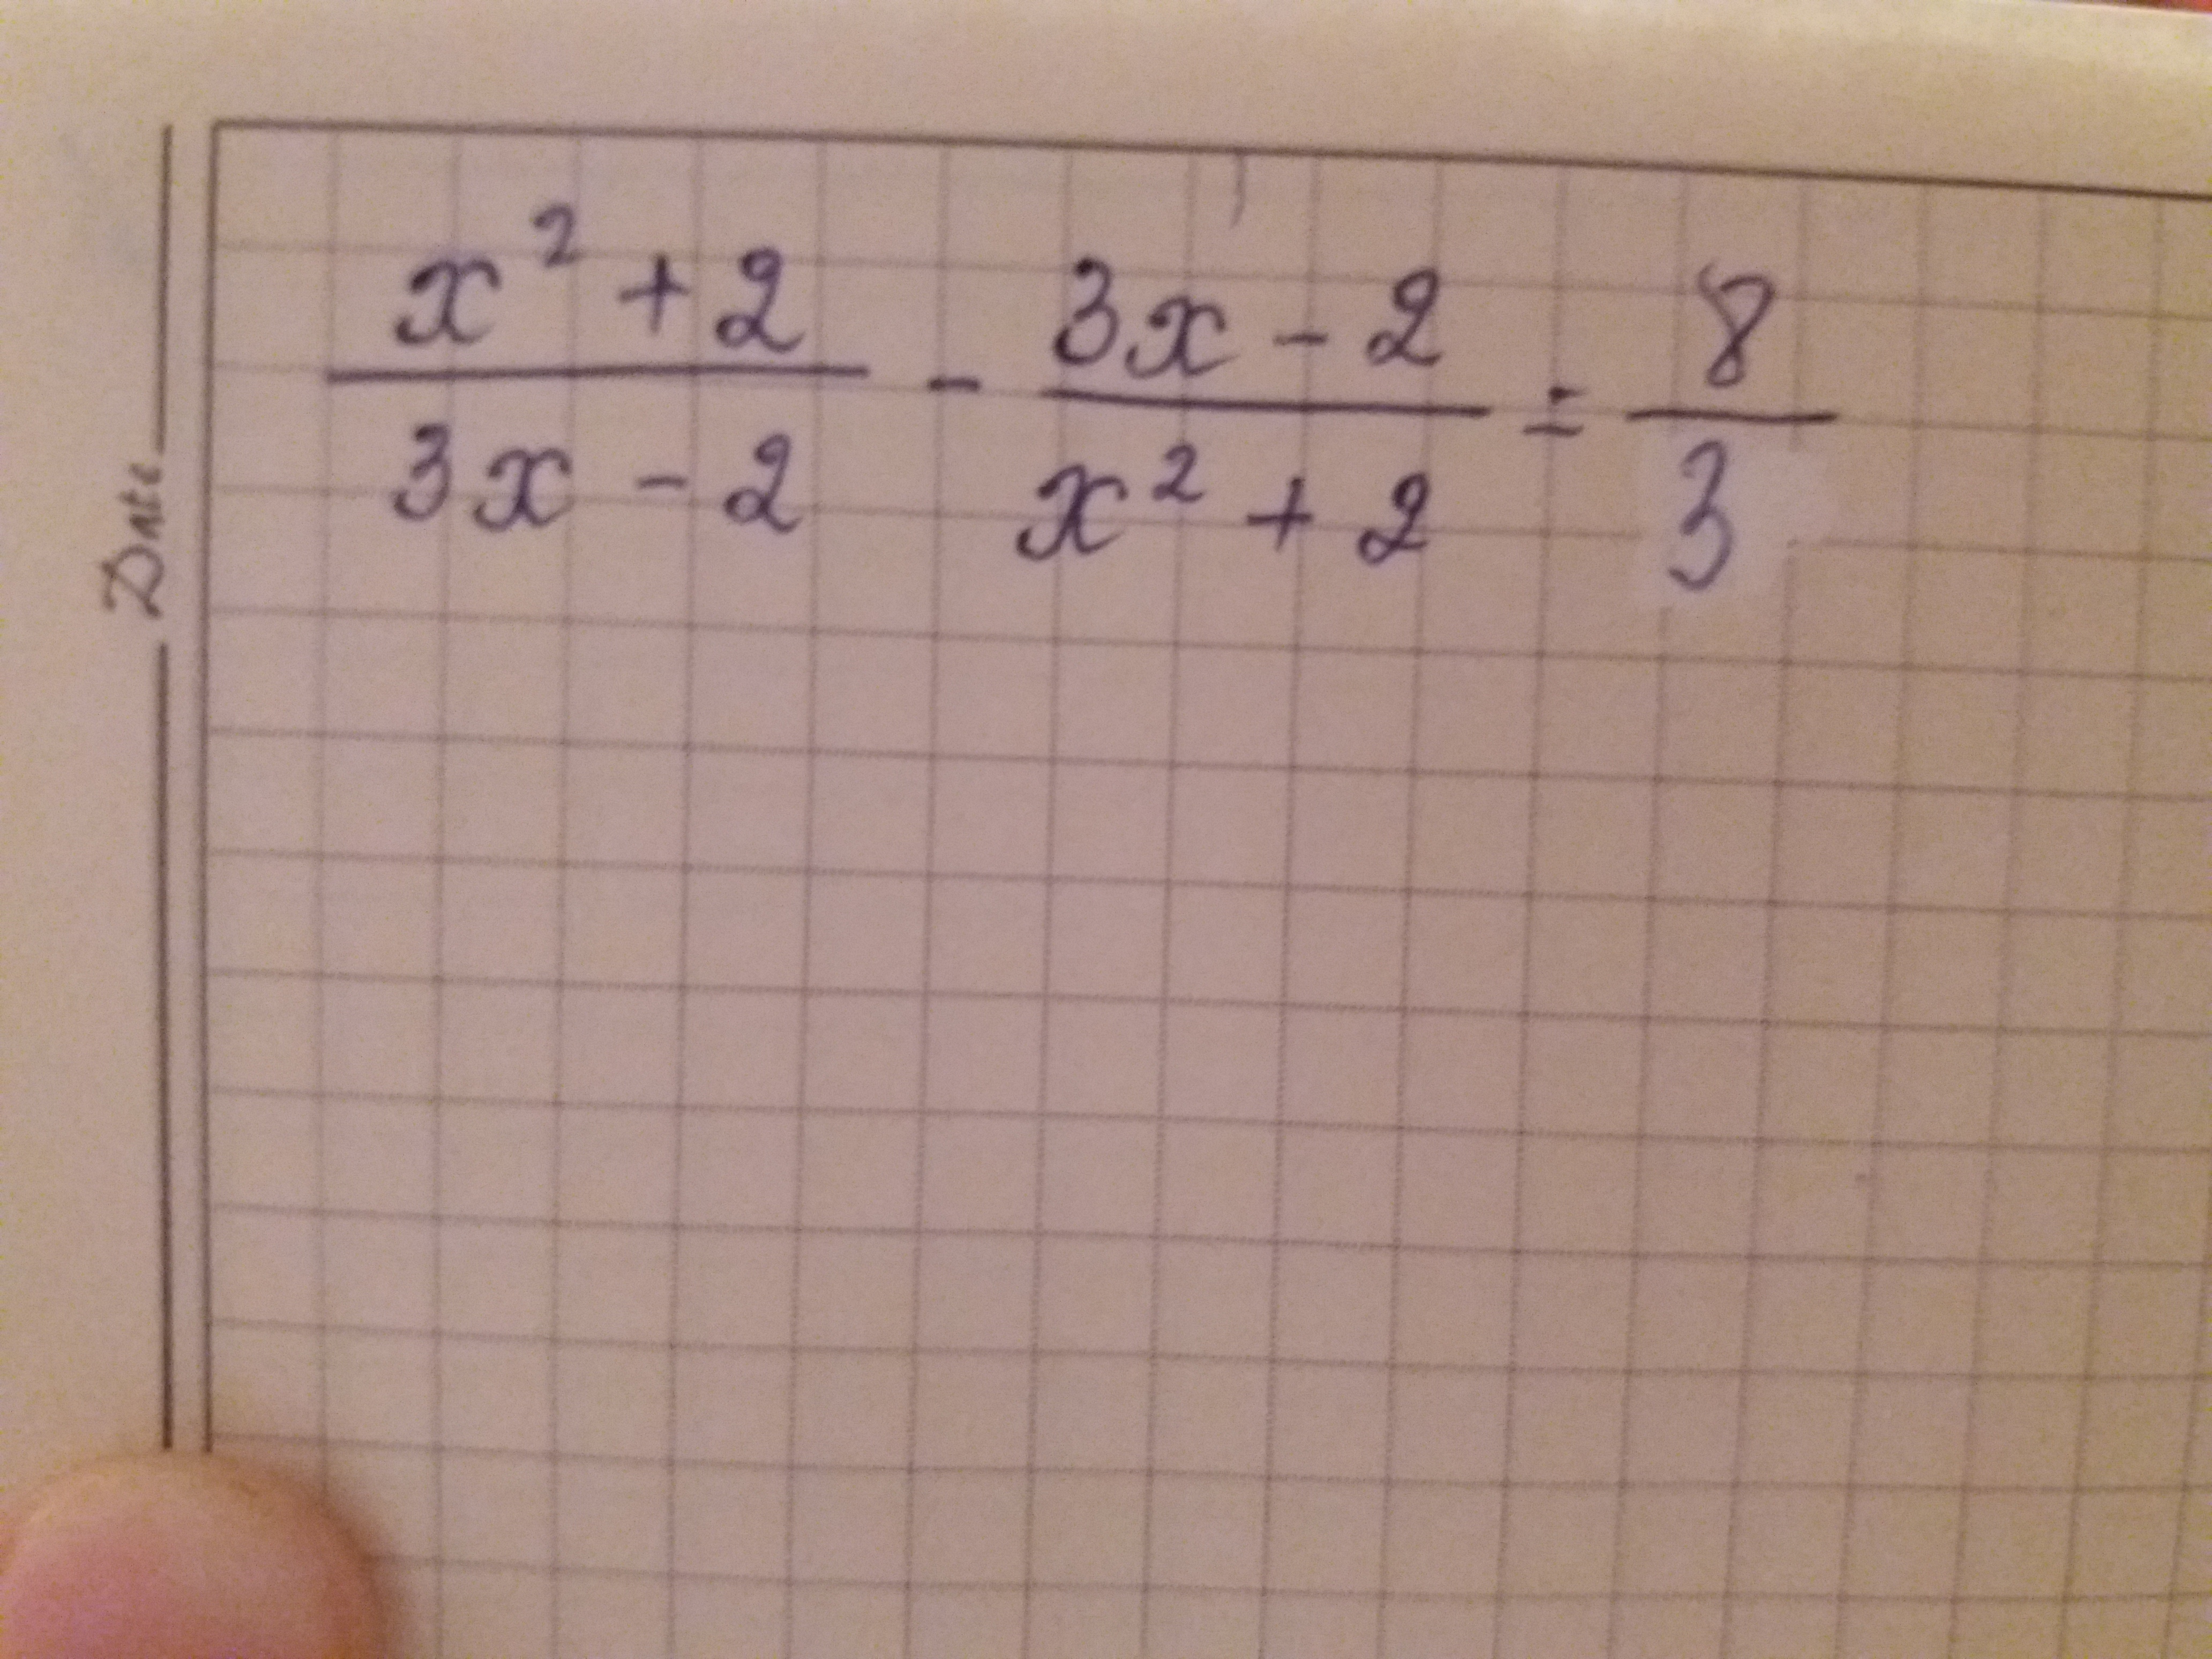 Date
x² + 2 / 3x - 2 - 3x - 2 / x² + 2 = 8 / 3